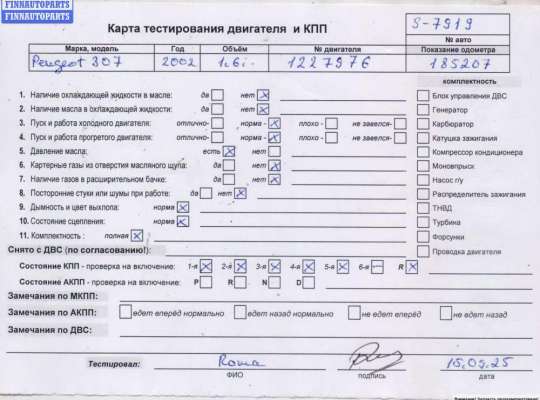 FINNAUTOPARTS
FINNAUTOPARTS
Карта тестирования двигателя и КПП
S-7919
№ авто
Марка, модель Год Объём № двигателя Показание одометра
Peugeot 307 2002 1.6i. 1227976 185207
комплектность
1. Наличие охлаждающей жидкости в масле: да нет
Блок управления ДВС
2. Наличие масла в охлаждающей жидкости: да нет
Генератор
3. Пуск и работа холодного двигателя: отлично- норма - плохо - не завелся-
Карбюратор
4. Пуск и работа прогретого двигателя: отлично- норма - плохо - не завелся-
Катушка зажигания
5. Давление масла: есть нет
Компрессор кондиционера
6. Картерные газы из отверстия масляного щупа: да нет
Моновпрыск
7. Наличие газов в расширительном бачке: да нет
Насос г/у
8. Посторонние стуки или шумы при работе: да нет
Распределитель зажигания
9. Дымность и цвет выхлопа: норма
ТНВД
10. Состояние сцепления: норма
Турбина
11. Комплектность : полная
Форсунки
Снято с ДВС (по согласованию!):
Проводка двигателя
Состояние КПП - проверка на включение: 1-я 2-я 3-я 4-я 5-я 6-я R
Состояние АКПП - проверка на включение: P R N D
Замечания по МКПП:
Замечания по АКПП: едет вперёд нормально едет назад нормально не едет вперёд не едет назад
Замечания по ДВС:
Тестировал: Roma 15.05.25
ФИО подпись дата